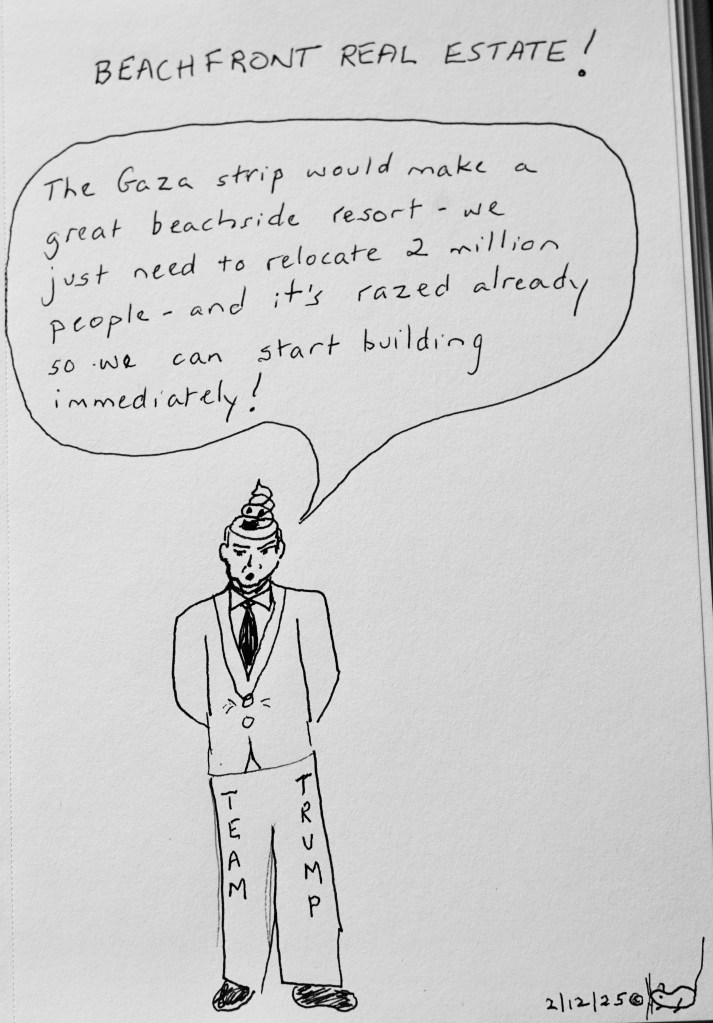 BEACHFRONT REAL ESTATE!
The Gaza strip would make a
great beachside resort - we
just need to relocate 2 million
people - and it's razed already
so we can start building
immediately!
TEAM
TRUMP
2/12/25©